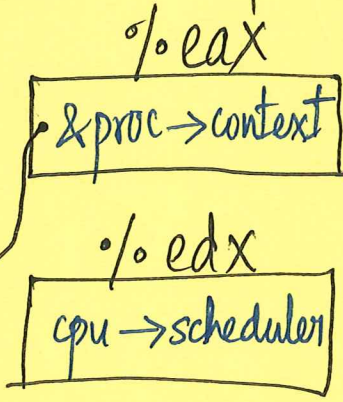 %eax
&proc->context
%edx
cpu->scheduler